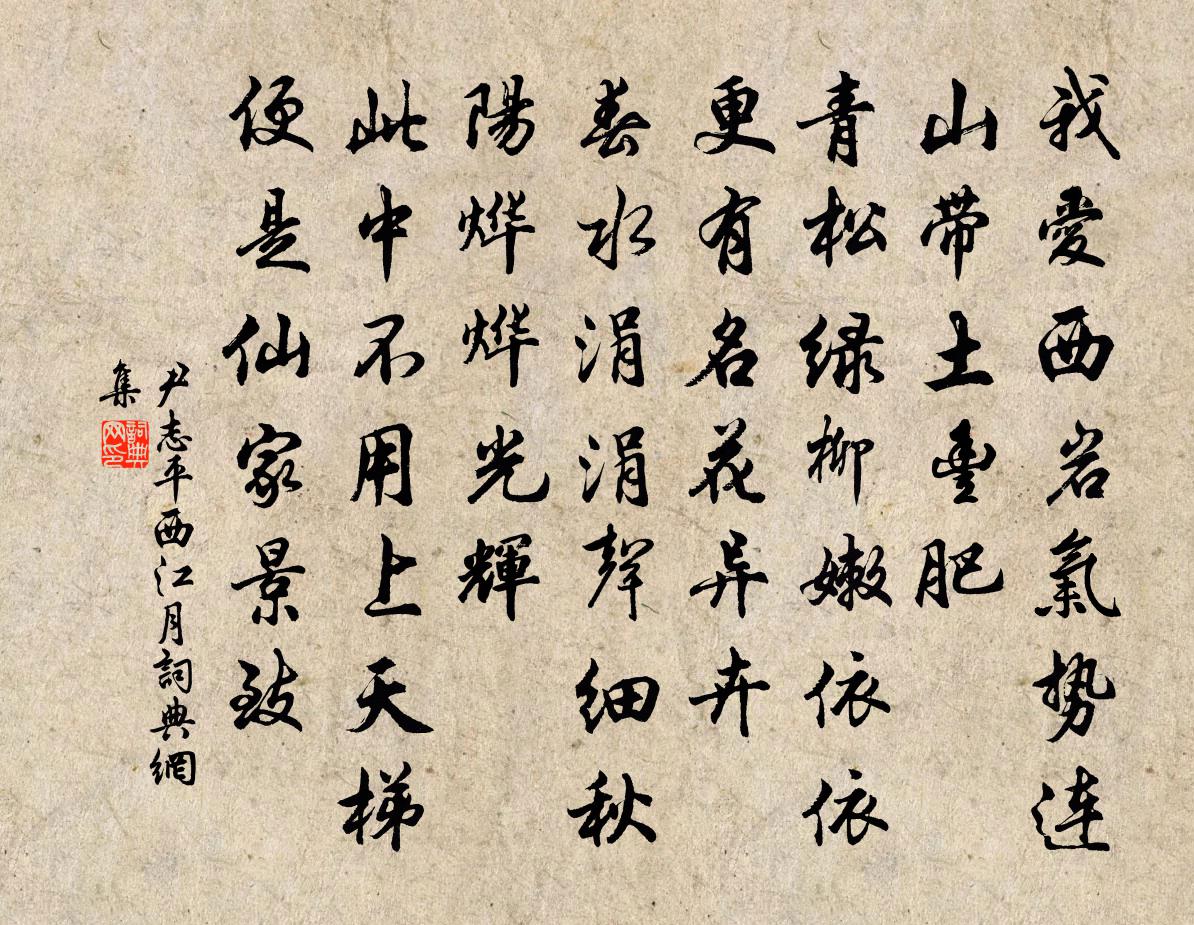 我愛西岩氣势连
山帶土豐肥
青松绿柳嫩依依
更有名花异卉
春水涓涓聲细秋
陽烨烨光輝
此中不用上天梯
便是仙家景致
尹志平西江月詞典網
集
詞典
网印